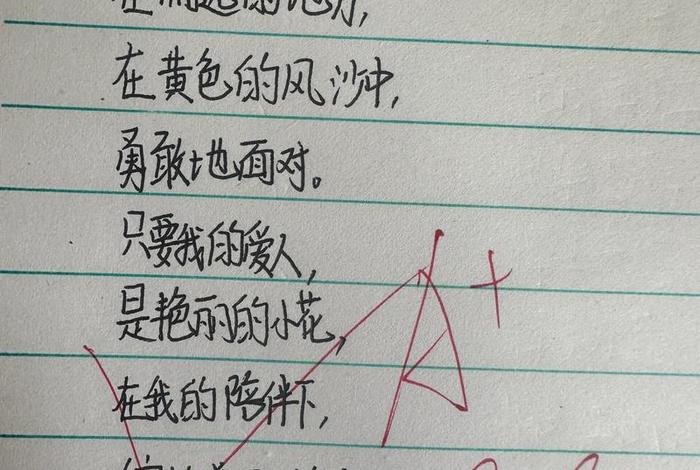 在黄色的风沙中,
勇敢地面对。
只要我的爱人,
是艳丽的小花,
在我的陪伴下,
A+